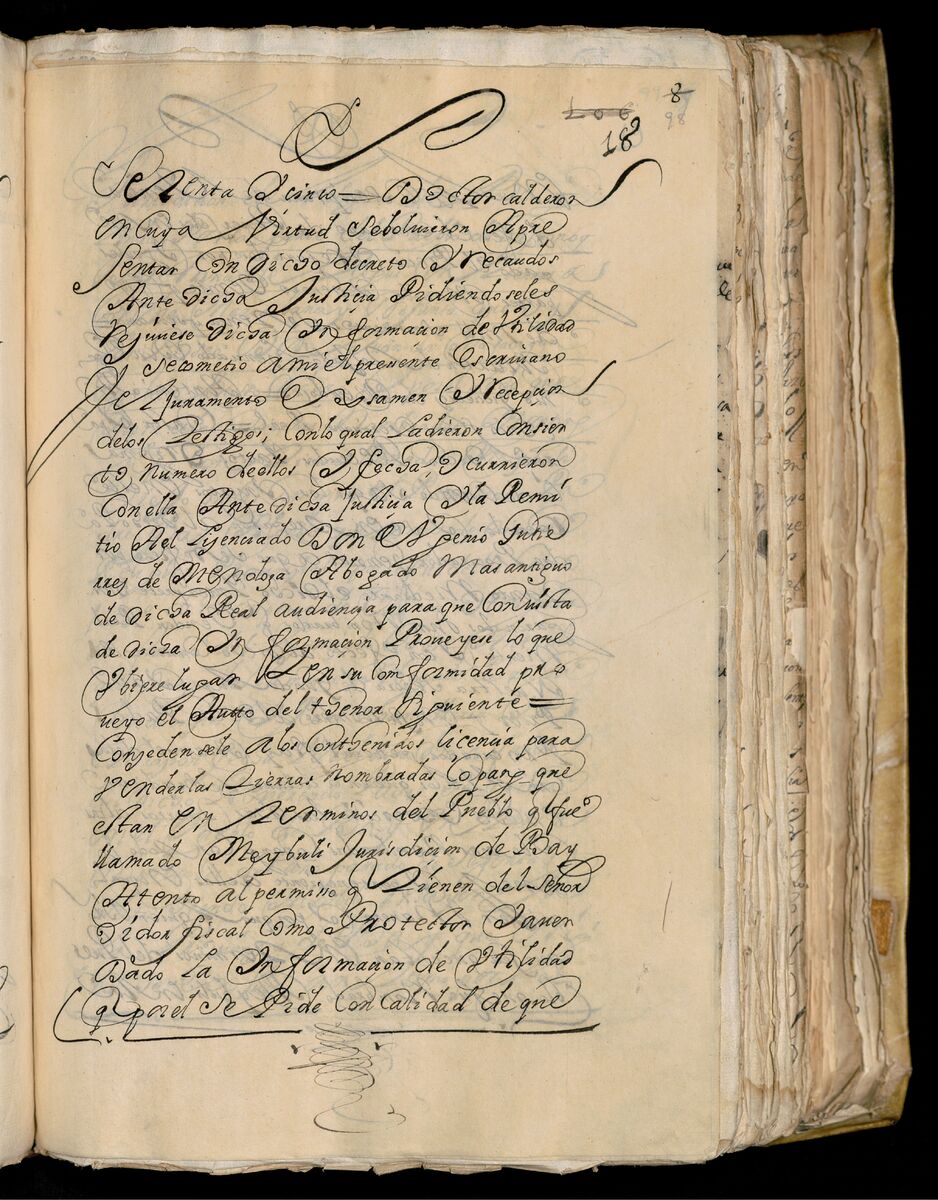 8
106
98
182
Setenta Y cinco = Doctor calderon
en cuya Virtud Sebolvieron Apre
sentar Con Dicho decreto Y recaudos
Ante dicha Justicia Pidiendoseles
resiuiese Dicha Informacion de Utilidad
Y secometio ami el presente Escriuano
el Juramento Examen Y recepcion
delos Testigos; Conlo qual Ladieron Consier
to numero de ellos Y fecha, ocurrieron
Con ella Ante dicha Justicia Y la Remi
tio Ael Lisenciado Don Eugenio Gutie
rrez de Mendoza Abogado Mas antiguo
de dicha Real audiencia para que Con vista
de dicha Informacion Proveyese lo que
Ubiere lugar Y en su Conformidad pro
ueyo el Autto del thenor Siguiente =
Consedensele Alos Conthenidos licencia para
Vender las Tierras nombradas que
estan en Terminos del Pueblo q fue
llamado Meybuli Jurisdicion de Bay
Atento al permiso q Tienen del Señor
Oidor fiscal Como Protector Y auer
Dado la Informacion de Utilidad
q por el Se Pide Con calidad de que